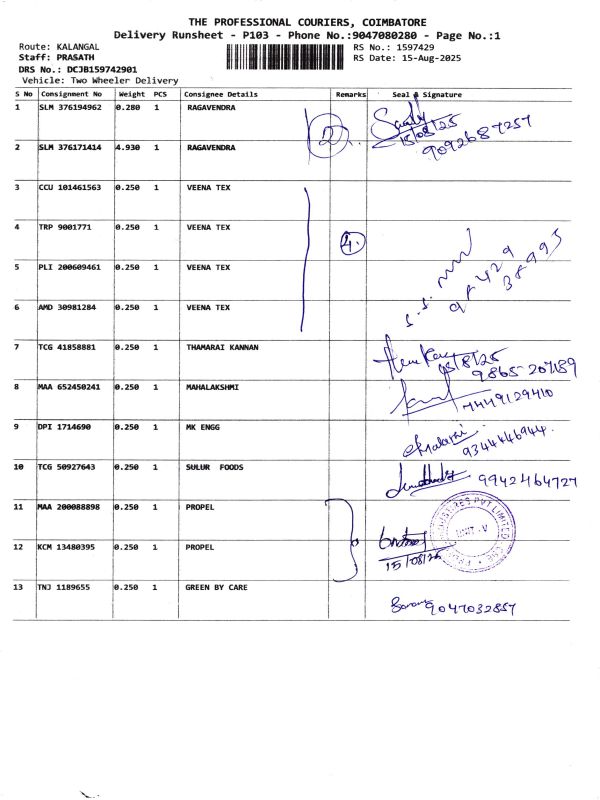 THE PROFESSIONAL COURIERS, COIMBATORE
Delivery Runsheet - P103 - Phone No.:9047080280 - Page No.:1
Route: KALANGAL RS No.: 1597429
Staff: PRASATH RS Date: 15-Aug-2025
DRS No.: DCJB159742901
Vehicle: Two Wheeler Delivery
S No Consignment No Weight PCS Consignee Details Remarks Seal & Signature
1 SLM 376194962 0.280 1 RAGAVENDRA 2 15/08/25
9092687257
2 SLM 376171414 4.930 1 RAGAVENDRA
3 CCU 101461563 0.250 1 VEENA TEX
4 TRP 9001771 0.250 1 VEENA TEX 4.
5 PLI 200609461 0.250 1 VEENA TEX
98429
38995
6 AMD 30981284 0.250 1 VEENA TEX
7 TCG 41858881 0.250 1 THAMARAI KANNAN 15/8/25
9865207189
8 MAA 652450241 0.250 1 MAHALAKSHMI 7449129410
9 DPI 1714690 0.250 1 MK ENGG 9344446944.
10 TCG 50927643 0.250 1 SULUR FOODS 9942464727
11 MAA 200088898 0.250 1 PROPEL
12 KCM 13480395 0.250 1 PROPEL 15/08/25
13 TNJ 1189655 0.250 1 GREEN BY CARE 9047032857